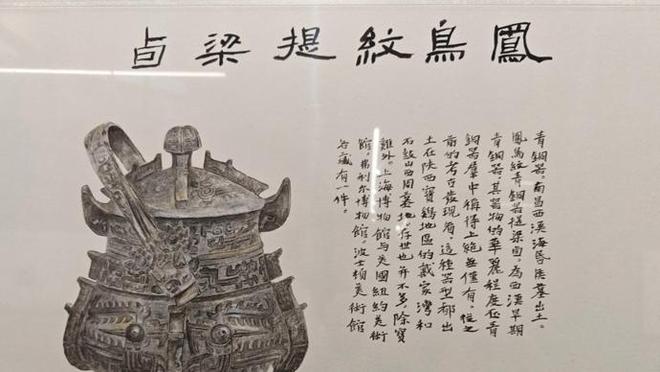 鳳鳥紋提梁卣
青銅器。南昌西漢海昏侯墓出土。
鳳鳥紋青銅器提梁卣，為西漢早期
青銅器其器物的華麗程度在青
銅器群中稱得上絕無僅有。從之
前的考古發現看，這種器型都出
土在陝西寶鷄地區的戴家灣和
石鼓山西周墓地。存世也并不多，除寶
雞外。上海博物館与美國紐約美術
館，弗利尔博物館，波士頓美術館
各藏有一件。